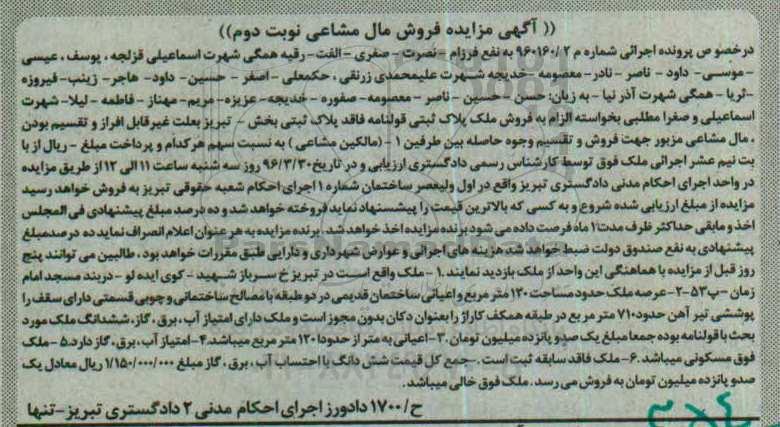 (( آگهی مزایده فروش مال مشاعی نوبت دوم))
درخصوص پرونده اجرائی شماره م ۹۶۰۱۶۰/۲ به نفع فرزام - نصرت - صفری - الفت - رقیه همگی شهرت اسماعیلی قزلجه ، یوسف ، عیسی
-موسی- داود - ناصر - نادر- معصومه -خدیجه شهرت علیمحمدی زرنقی ، حکمعلی - اصغر - حسین - داود- هاجر- زینب- فیروزه
-ثریا - همگی شهرت آذر نیا - به زیان: حسن - حسین - ناصر - معصومه- صفوره - خدیجه- عزیزه- مریم- مهناز - فاطمه - لیلا- شهرت
اسماعیلی و صغرا مطلبی بخواسته الزام به فروش ملک پلاک ثبتی قولنامه فاقد پلاک ثبتی بخش - تبریز بعلت غیرقابل افراز و تقسیم بودن
، مال مشاعی مزبور جهت فروش و تقسیم وجوه حاصله بین طرفین ۱ - (مالکین مشاعی ) به نسبت سهم هرکدام و پرداخت مبلغ - ریال از با
بت نیم عشر اجرائی ملک فوق توسط کارشناس رسمی دادگستری ارزیابی و در تاریخ ۹۶/۳/۳۰ روز سه شنبه ساعت ۱۱ الی ۱۲ از طریق مزایده
در واحد اجرای احکام مدنی دادگستری تبریز واقع در اول ولیعصر ساختمان شماره ۱ اجرای احکام شعبه حقوقی تبریز به فروش خواهد رسید
مزایده از مبلغ ارزیابی شده شروع و به کسی که بالاترین قیمت را پیشنهاد نماید فروخته خواهد شد و ده درصد مبلغ پیشنهادی فی المجلس
اخذ و مابقی حداکثر ظرف مدت ۱ ماه فرصت داده می شود برنده مزایده اخذ خواهد شد. برنده مزایده به هر عنوان اعلام انصراف نماید ده درصدمبلغ
پیشنهادی به نفع صندوق دولت ضبط خواهد شد هزینه های اجرائی و عوارض شهرداری و دارایی طبق مقررات خواهد بود . طالبین می توانند پنج
روز قبل از مزایده با هماهنگی این واحد از ملک بازدید نمایند.۱ - ملک واقع است در تبریز خ سرباز شهید - کوی ایده لو - دربند مسجد امام
زمان -پ۵۳ -۲- عرصه ملک حدود مساحت ۱۳۰ متر مربع و اعیانی ساختمان قدیمی در دو طبقه با مصالح ساختمانی و چوبی قسمتی دارای سقف را
پوششی تیر آهن حدود۷۱۰ متر مربع در طبقه همکف کاراژ را بعنوان دکان بدون مجوز است و ملک دارای امتیاز آب ، برق ، گاز، ششدانگ ملک مورد
بحث با قولنامه بوده جمعا مبلغ یک صدو پانزده میلیون تومان .۳- اعیانی به متر از حدودا ۱۳۰ متر مربع میباشد.۴- امتیاز آب ، برق ، گاز دارد.۵ - ملک
فوق مسکونی میباشد .۶- ملک فاقد سابقه ثبت است .- جمع کل قیمت شش دانگ با احتساب آب ، برق ، گاز مبلغ ۱/۱۵۰/۰۰۰/۰۰۰ ریال معادل یک
صدو پانزده میلیون تومان به فروش می رسد. ملک فوق خالی میباشد.
ح/۱۷۰۰ دادورز اجرای احکام مدنی ۲ دادگستری تبریز-تنها